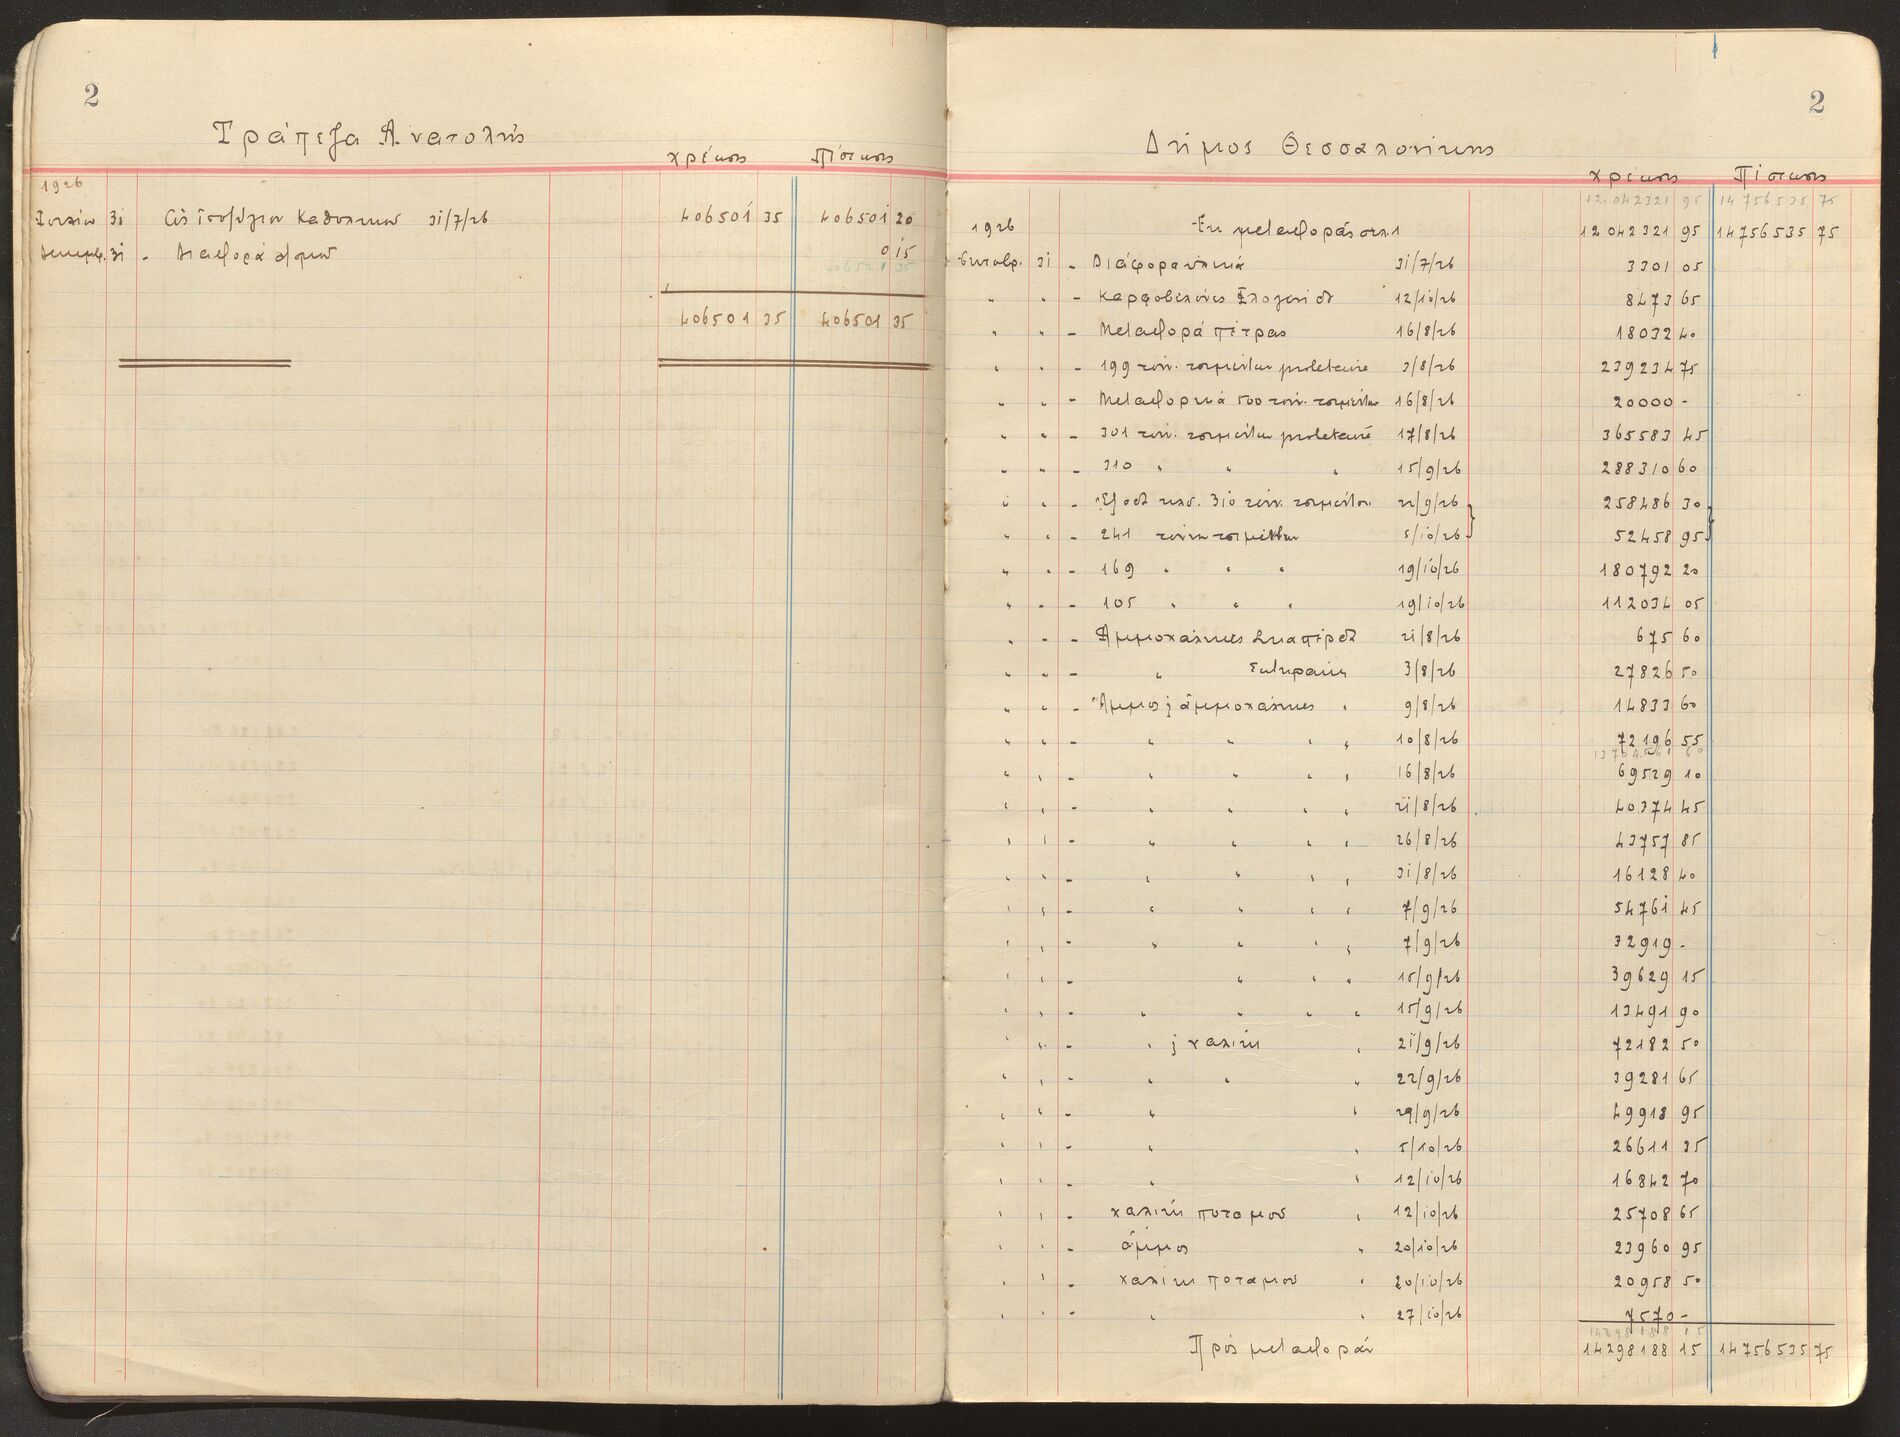 2
Τράπεζα Ανατολής
χρέωσις πίστωσις
1926
Ιουλίου 31 Ως ισοζύγιον Καθολικού 31/7/26 406501 35 406501 20
Δεκεμβ. 31 - Διαφορά 0 15
406501 35
406501 35 406501 35
2
Δήμος Θεσσαλονίκης
χρέωσις Πίστωσις
12.042321 95 14756535 75
1926 Εκ μεταφοράς σελ. 1 12042321 95 14756535 75
Οκτωβρ. 31 - Διάφορα υλικά 31/7/26 3301 05
" " - Καρφοβελόνες 12/10/26 8473 65
" " - Μεταφορά πέτρας 16/8/26 18032 40
" " - 199 τόν. τσιμέντων 3/8/26 239234 75
" " - Μεταφορικά 500 τόν. τσιμέντων 16/8/26 20000 -
" " - 301 τόν. τσιμέντων 17/8/26 365583 45
" " - 310 " " " 15/9/26 288310 60
" " - Έξοδα 310 τόνν. τσιμέντου 22/9/26 258486 30
" " - 241 τόννων τσιμέντων 5/10/26 52458 95
" " - 169 " " " 19/10/26 180792 20
" " - 105 " " " 19/10/26 112034 05
" " - Αμμοχάλικες 21/8/26 675 60
" " - " Σωτηράκη 3/8/26 27826 50
" " - Άμμος ϗ αμμοχάλικες " 9/8/26 14833 60
" " - " " " " 10/8/26 72196 55
" " - " " " " 16/8/26 69529 10
" " - " " " " 21/8/26 40374 45
" " - " " " " 26/8/26 43757 85
" " - " " " " 31/8/26 16128 40
" " - " " " " 7/9/26 54761 45
" " - " " " " 7/9/26 32919 -
" " - " " " 15/9/26 39629 15
" " - " " " " 15/9/26 13491 90
" " - " ϗ χαλίκι " 21/9/26 72182 50
" " - " " " 22/9/26 39281 65
" " - " " 29/9/26 49918 95
" " - " " 5/10/26 26611 35
" " - " " 12/10/26 16842 70
" " - χαλίκι ποταμού " 12/10/26 25708 65
" " - άμμος " 20/10/26 23960 95
" " - χαλίκι ποταμού " 20/10/26 20958 50
" " - " " 27/10/26 7570 -
14298188 15
Προς μεταφοράν 14298188 15 14756535 75